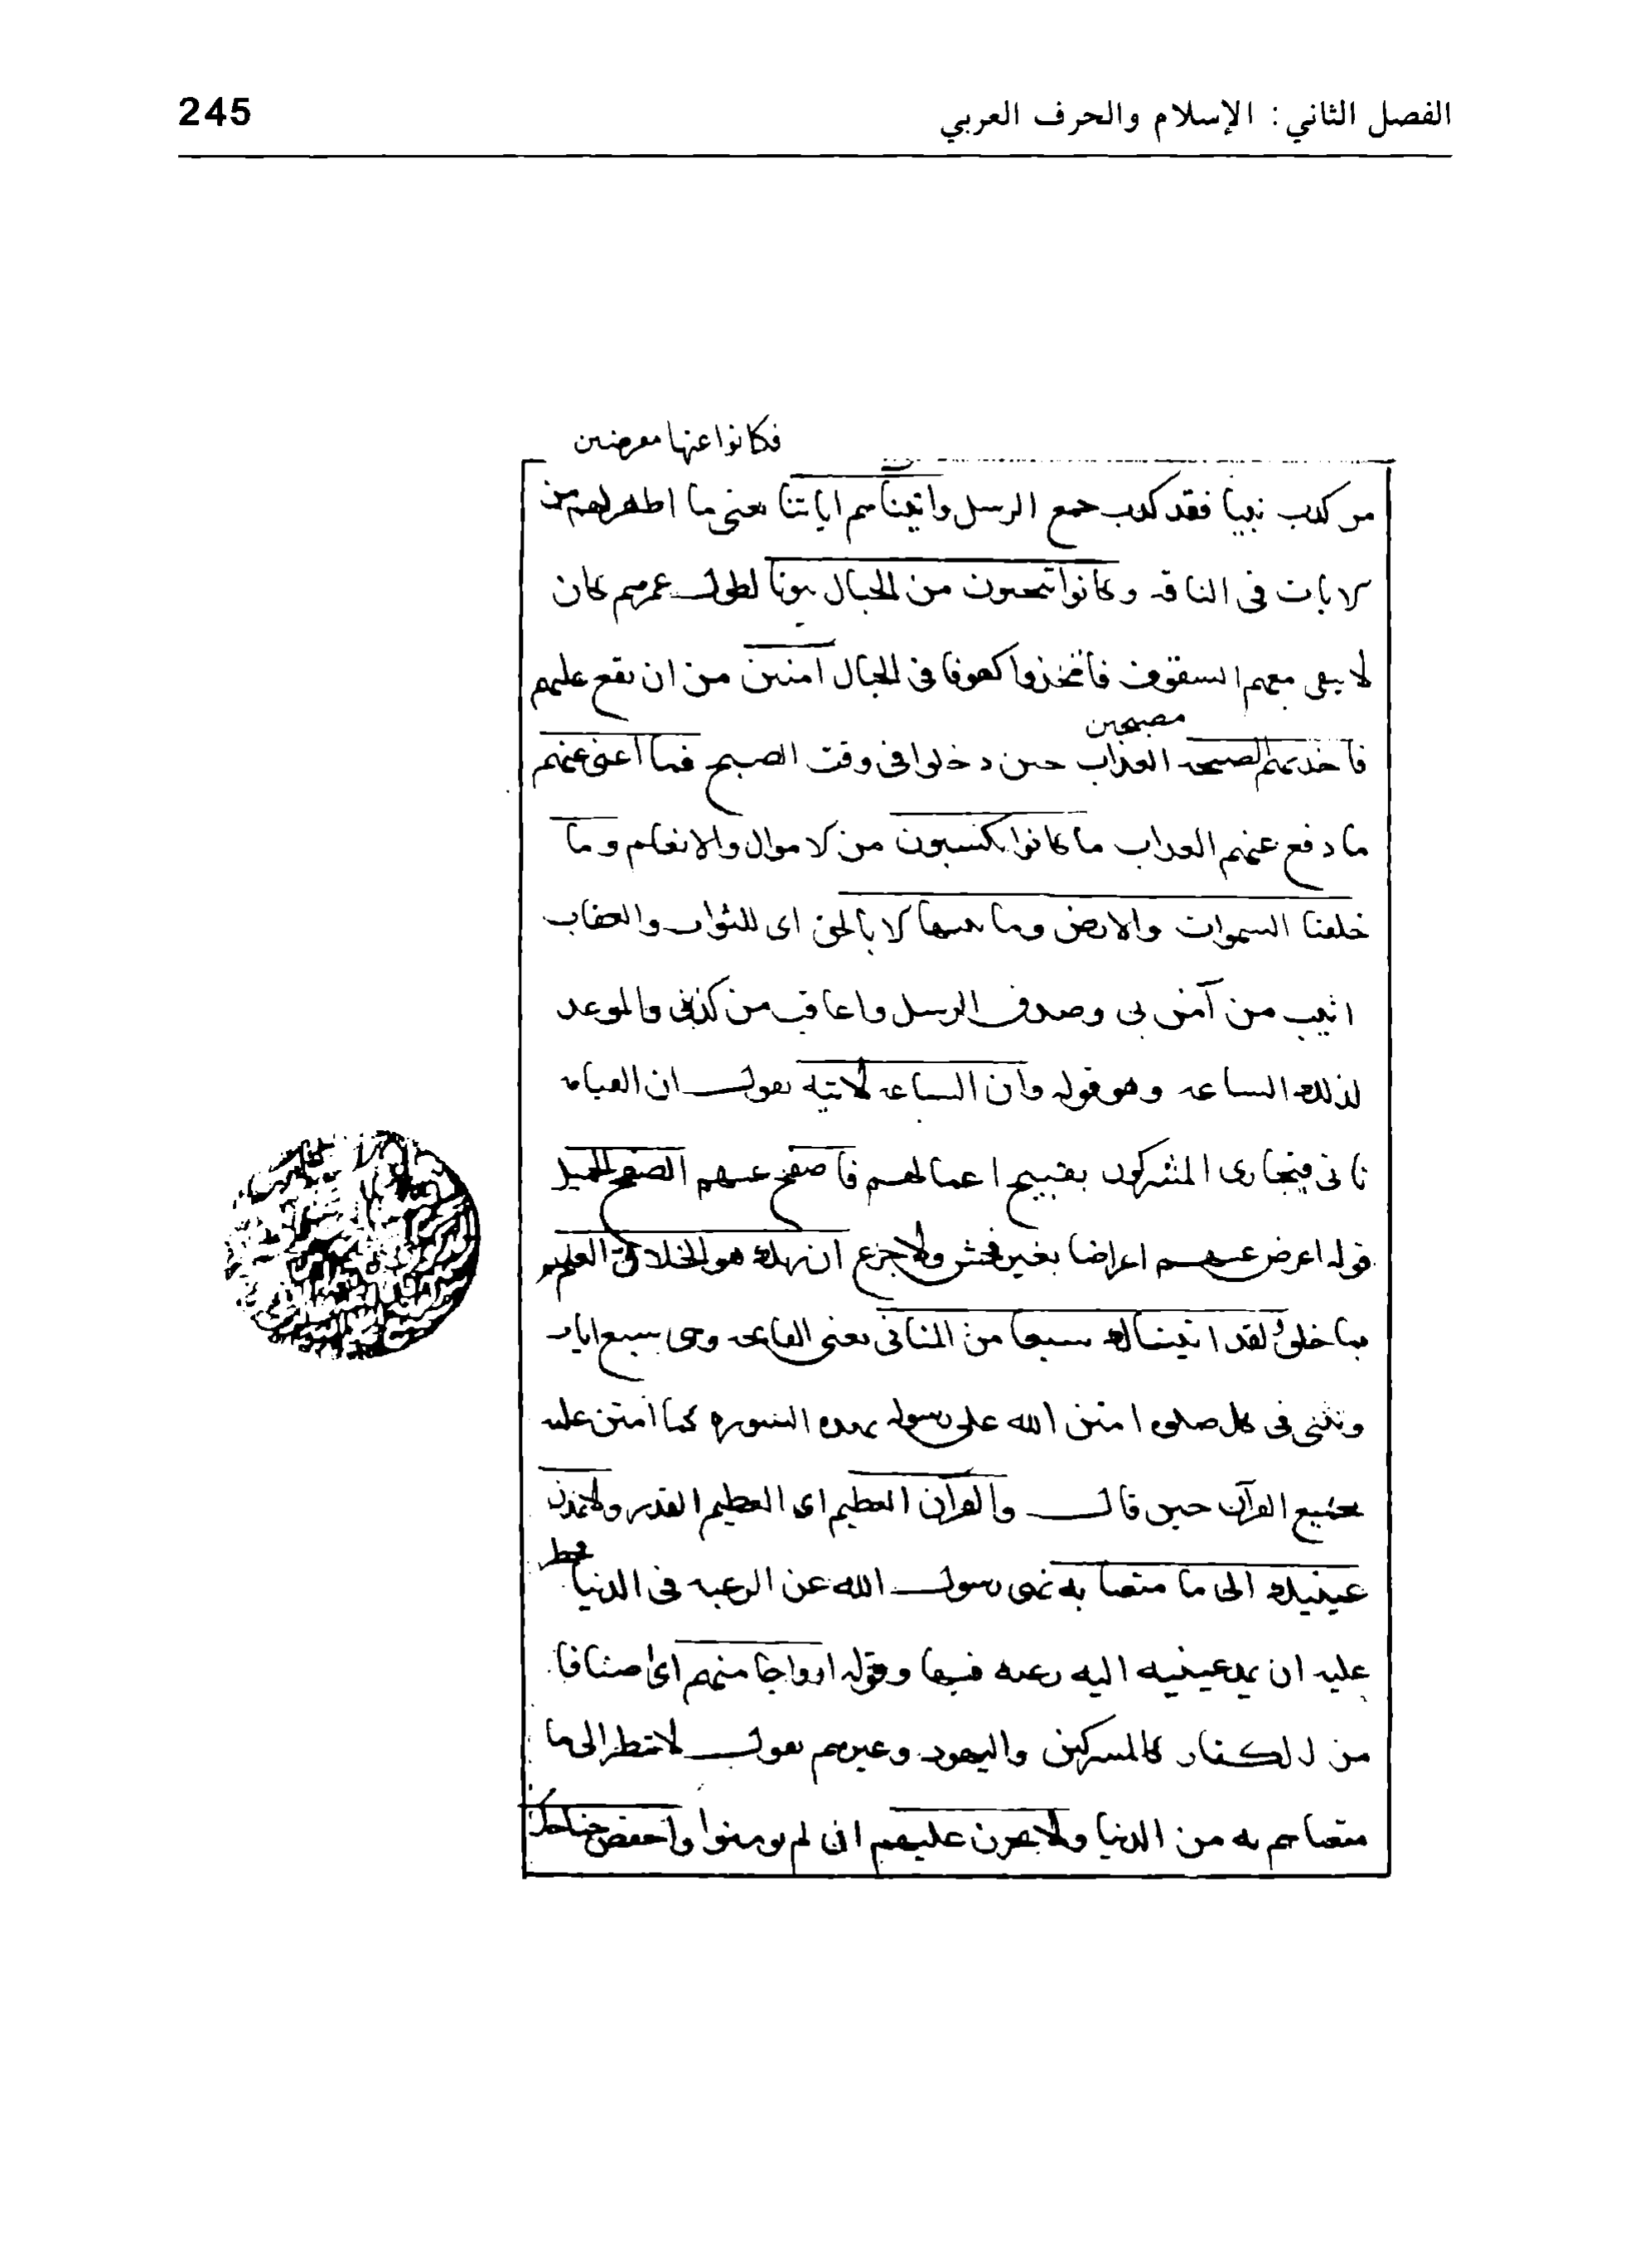 الفصل الثاني: الإسلام والحرف العربي
245
فكانوا عنها معرضين
من كذب نبيا فقد كذب جمع الرسل واتيناهم اياتنا يعني ما اظهر لهم من
الايات في الناقه وكانوا ينحتون من الجبال بيوتا لطول عمرهم كان
لا يبقى معهم السقوف فاتخذوا كهوفا في الجبال آمنين من ان يقع عليهم
مصبحين
فاخذتهم الصيحه العذاب حين دخلوا في وقت الصبح فما اغنى عنهم
ما دفع عنهم العذاب ما كانوا يكسبون من الاموال والانعام وما
خلقنا السموات والارض وما بينهما الا بالحق اى للثواب والعقاب
اثيب من آمن بى وصدق الرسل واعاقب من كذبنى والموعد
لذلك الساعه وهو قوله وان الساعه لاتيه يقول ان القيامه
تاتى فيجازى المشركون بقبيح اعمالهم فاصفح عنهم الصفح الجميل
قوله اعرض عنهم اعراضا بغير فحش ولا جزع ان ربك هو الخلاق العليم
بما خلق ولقد اتيناك سبعا من المثاني يعنى الفاتحه وهى سبع ايات
وتثنى في كل صلوه امتن الله على رسوله بهذه السوره كما امتن عليه
بجميع القرآن حين قال والقرآن العظيم اى العظيم القدر ولا تمدن
عينيك الى ما متعنا به نهى رسول الله عن الرغبه في الدنيا فحظر
عليه ان يمد عينيه اليه رغبه فيها وقوله ازواجا منهم اى اصنافا
من الكفار كالمشركين واليهود وغيرهم يقول لا تنظر الى ما
متعناهم به من الدنيا ولا تحزن عليهم ان لم يومنوا واخفض جناحك